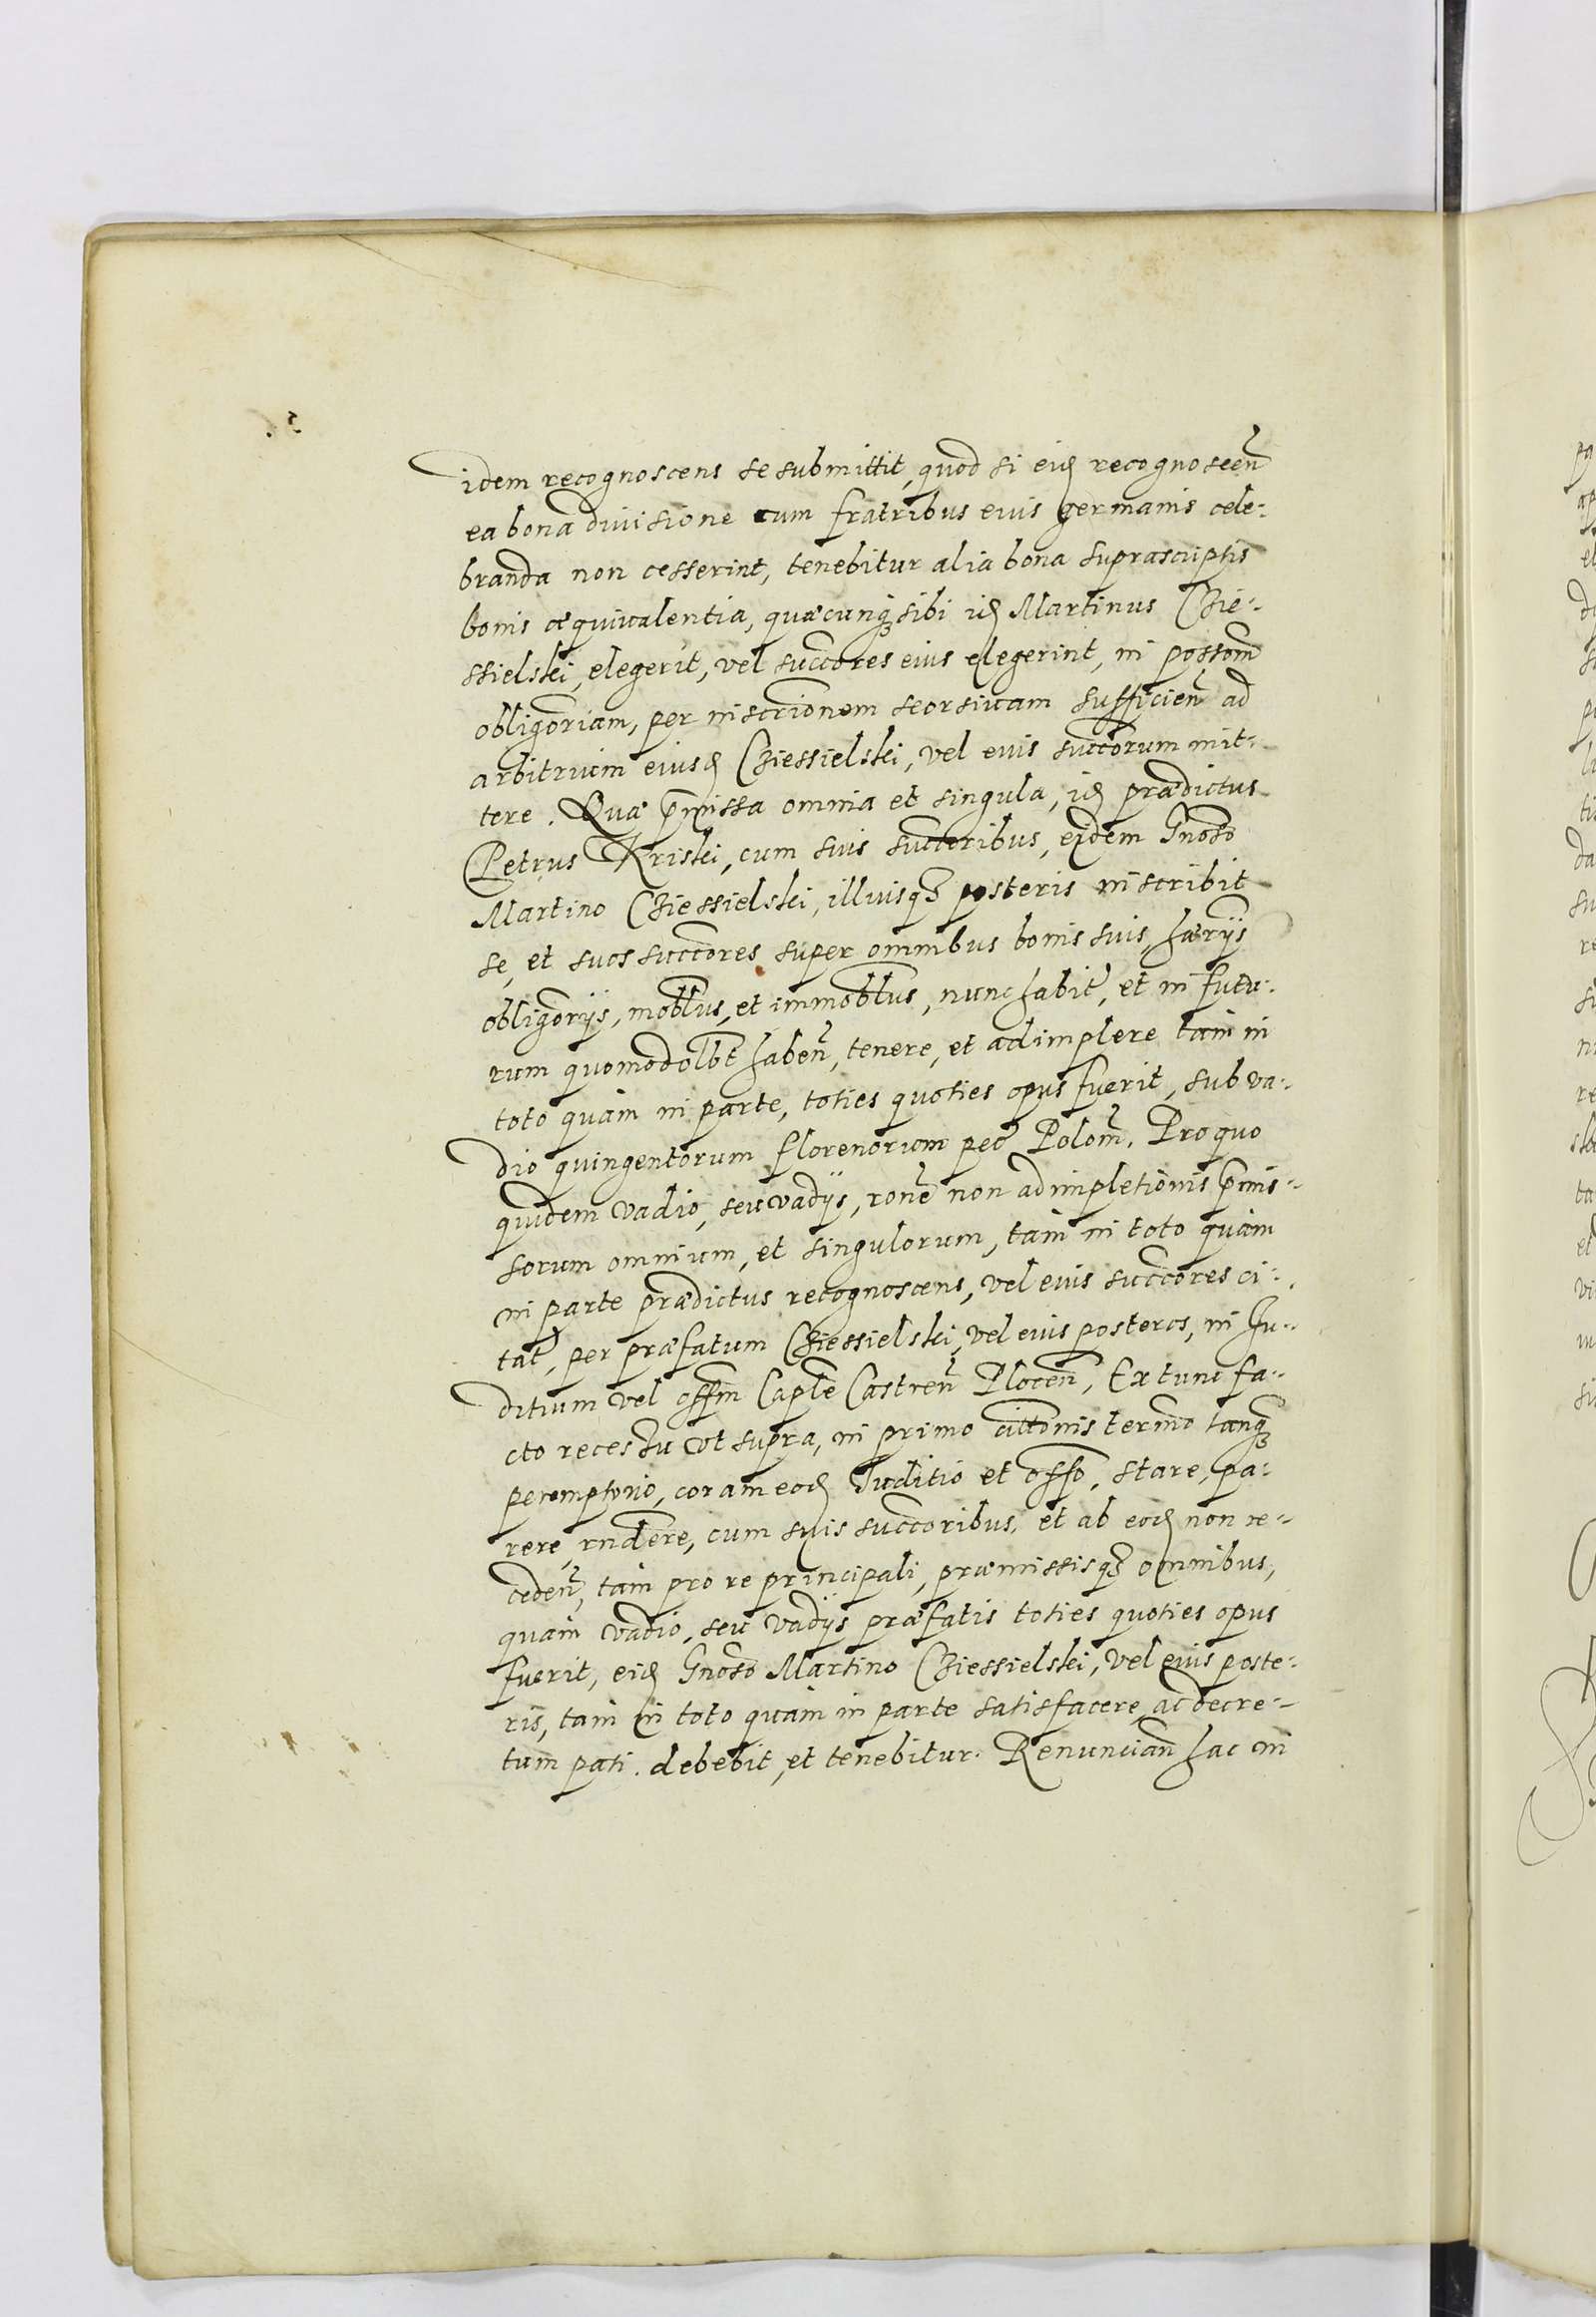 idem recognoscens se submittit, quod si eid recognosceñ
ea bona diuisione cum fratribus eius germanis cele-
branda non cesserint, tenebitur alia bona suprascriptis
bonis æquiualentia, quæcunq sibi id Martinus Czie-
ssielski, elegerit, vel succores eius elegerint, in possom̃
obligoriam, per inscrionem seorsiuam sufficieñ ad
arbitrium eiusd Cziessielski, vel eius succorum mit-
tere. Quæ pmissa omnia et singula, id prædictus
Petrus Kriski, cum suis succoribus, eidem Gnoso
Martino Cziessielski, illiusq posteris inscribit
se, et suos succores super omnibus bonis suis, hærijs
obligorijs, mobbus, et immobbus, nunc habit, et in futu-
rum quomodolbt habeñ, tenere, et adimplere tam in
toto quàm in parte, toties quoties opus fuerit, sub va-
dio quingentorum florenorum pec Poloñ. Pro quo
quidem vadio, seu vadijs, rone non adimpletionis pmis-
sorum omnium, et singulorum, tam in toto quàm
in parte prædictus recognoscens, vel eius succores ci-
tat, per præfatum Cziessielski, vel eius posteros, in Ju-
ditium vel offm Caple Castreñ Ploceñ, Ex tunc fa-
cto recessu vt supra, in primo cittonis termo tanq
peremptorio, coram eod Juditio et offo, stare, pa-
rere, rndere, cum suis succoribus, et ab eod non re-
cedeñ, tam pro re principali, præmissisq omnibus,
quàm vadio, seu vadijs præfatis toties quoties opus
fuerit, eid Gnoso Martino Cziessielski, vel eius poste-
ris, tam in toto quàm in parte satisfacere, ac decre-
tum pati debebit, et tenebitur. Renuncian hac in